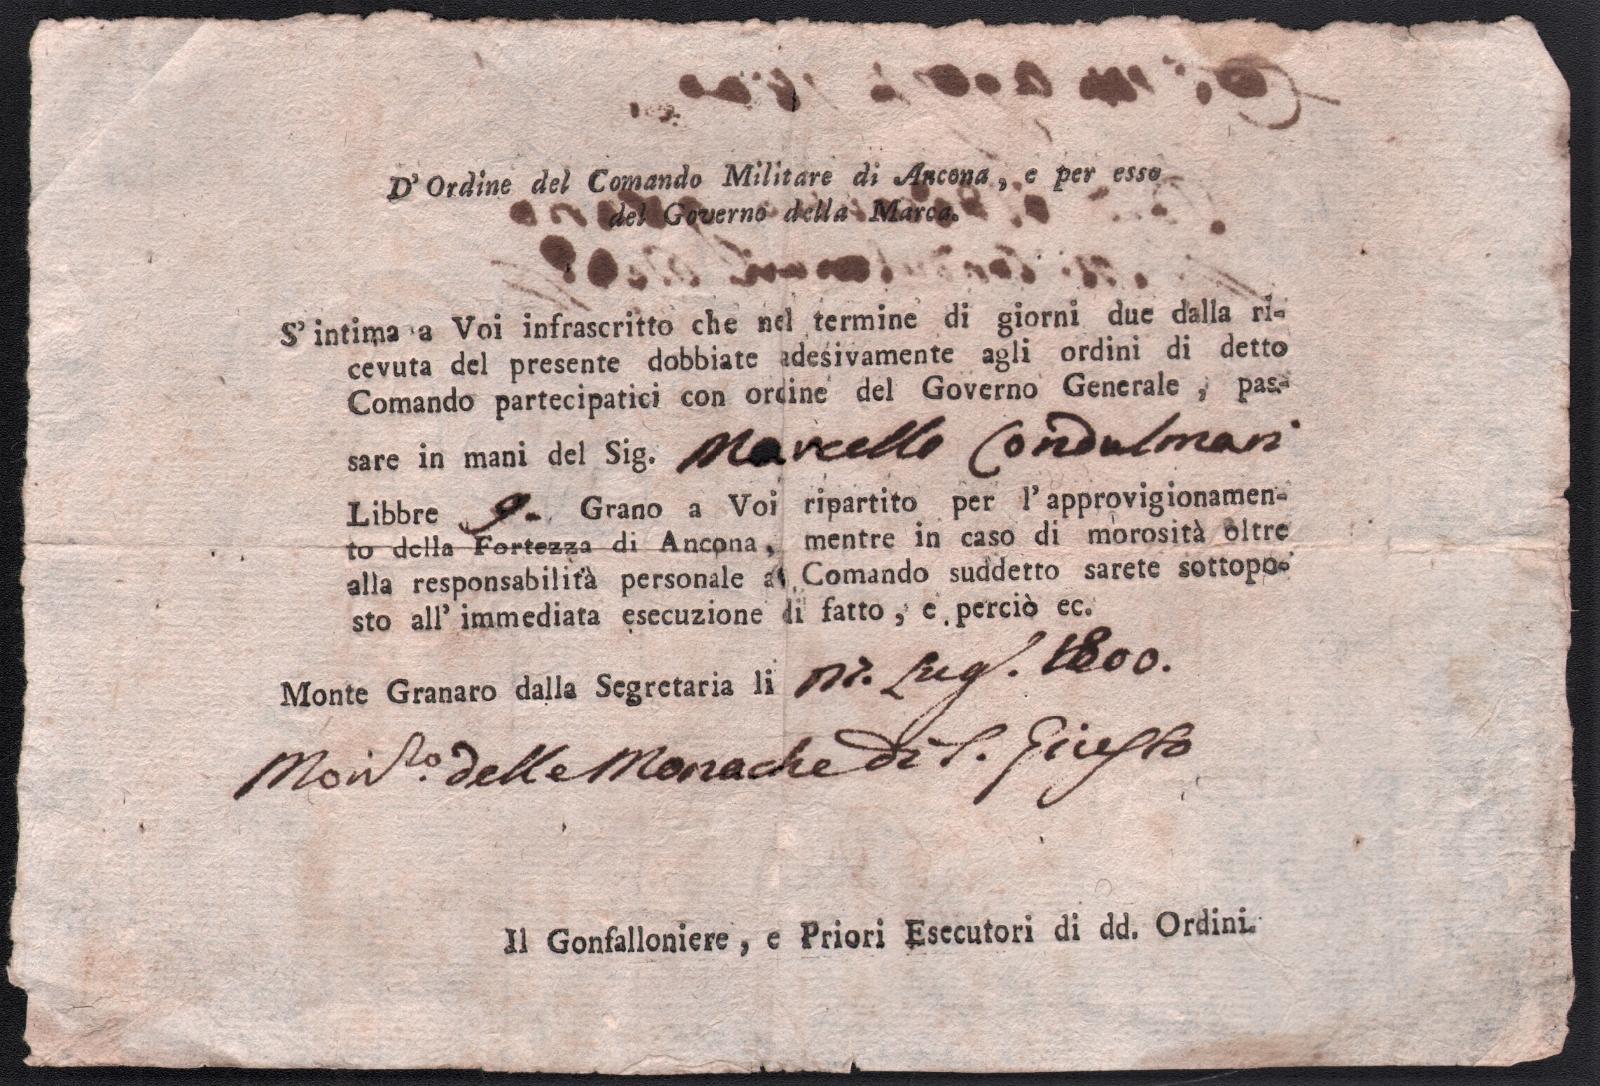 D' Ordine del Comando Militare di Ancona, e per esso
del Governo della Marca.
S' intima a Voi infrascritto che nel termine di giorni due dalla ri-
cevuta del presente dobbiate adesivamente agli ordini di detto
Comando partecipatici con ordine del Governo Generale, pas-
sare in mani del Sig. Marcello Condulmari
Libbre 9. Grano a Voi ripartito per l' approvigionamen-
to della Fortezza di Ancona, mentre in caso di morosità oltre
alla responsabilità personale al Comando suddetto sarete sottopo-
sto all' immediata esecuzione di fatto, e perciò ec.
Monte Granaro dalla Segretaria li Lug. 1800.
delle Monache di S. Giusto
Il Gonfalloniere, e Priori Esecutori di dd. Ordini.